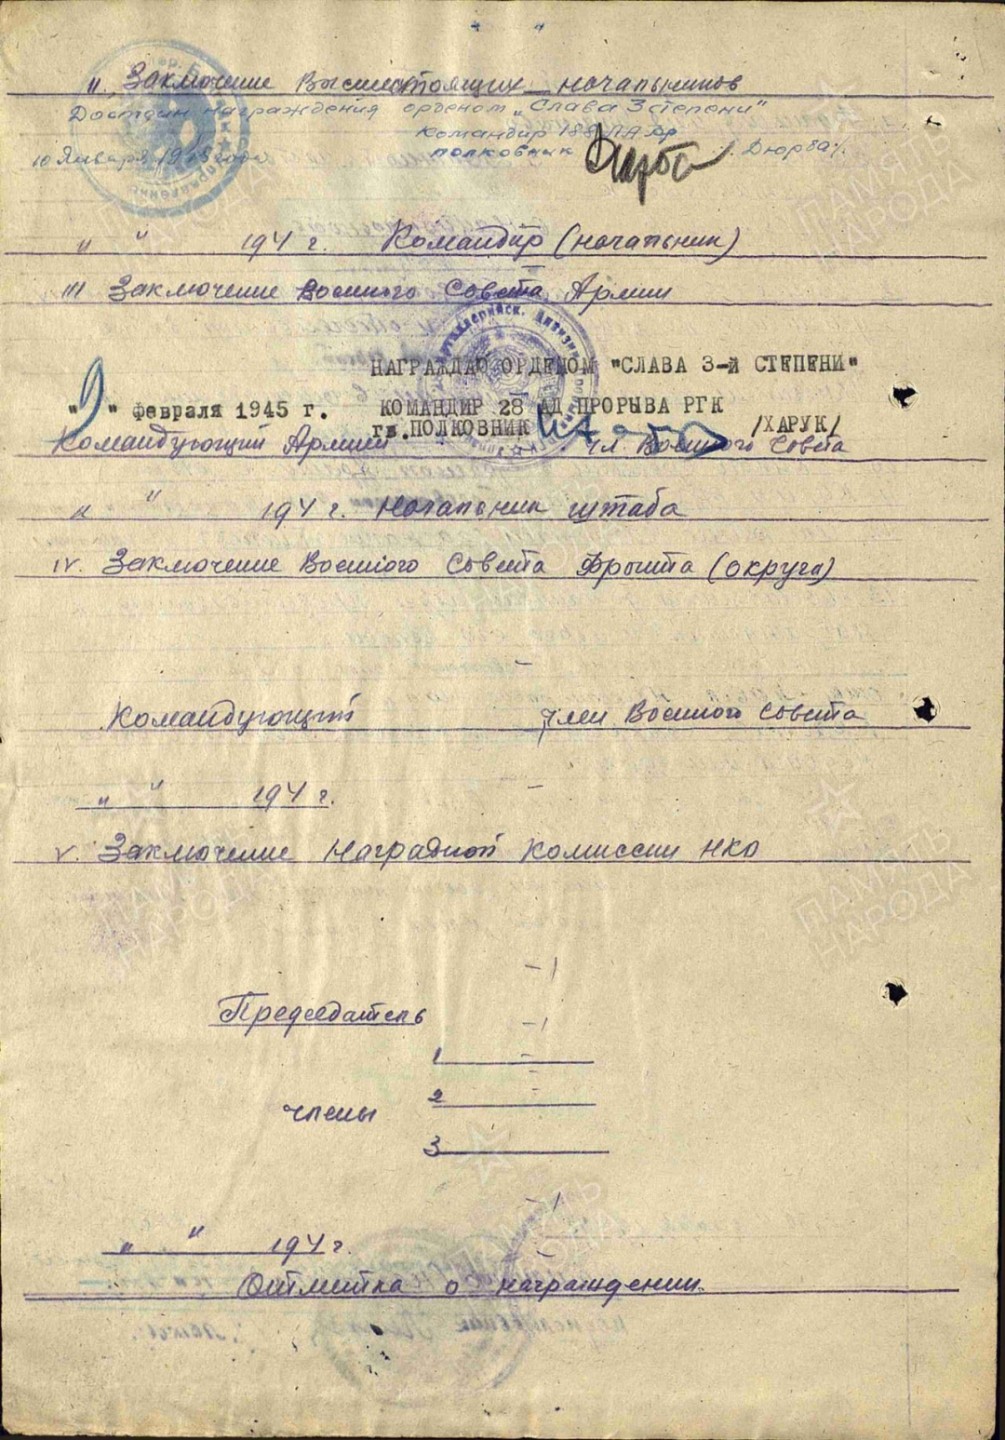 II. Заключение Вышестоящих начальников
Достоин награждения орденом "Слава 3 степени"
Командир 188 ПАБр
10 Января 1945 года полковник /Дюрба/.
" " 194 г. Командир (начальник)
III Заключение Военного Совета Армии
НАГРАЖДАЮ ОРДЕНОМ "СЛАВА 3-й СТЕПЕНИ"
"9" февраля 1945 г. КОМАНДИР 28 АД ПРОРЫВА РГК
гв. ПОЛКОВНИК /ХАРУК/
Командующий Армией чл. Военного Совета
" " 194 г. Начальник штаба
IV. Заключение Военного Совета Фронта (округа)
Командующий член Военного Совета
" " 194 г.
V. Заключение Наградной Комиссии НКО
Председатель
1
члены 2
3
" " 194 г.
Отметка о награждении
ПАМЯТЬ НАРОДА